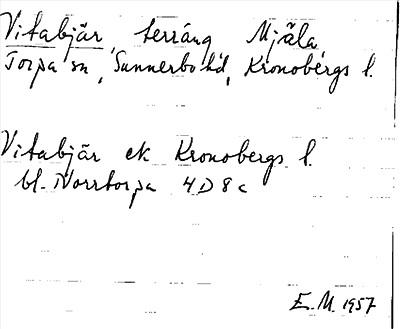 Vitabjär, terräng Mjäla
Torpa sn, Sunnerbo hd, Kronobergs l.
Vitabjär ek Kronobergs l.
bl. Norrtorpa 4D8c
E.M. 1957